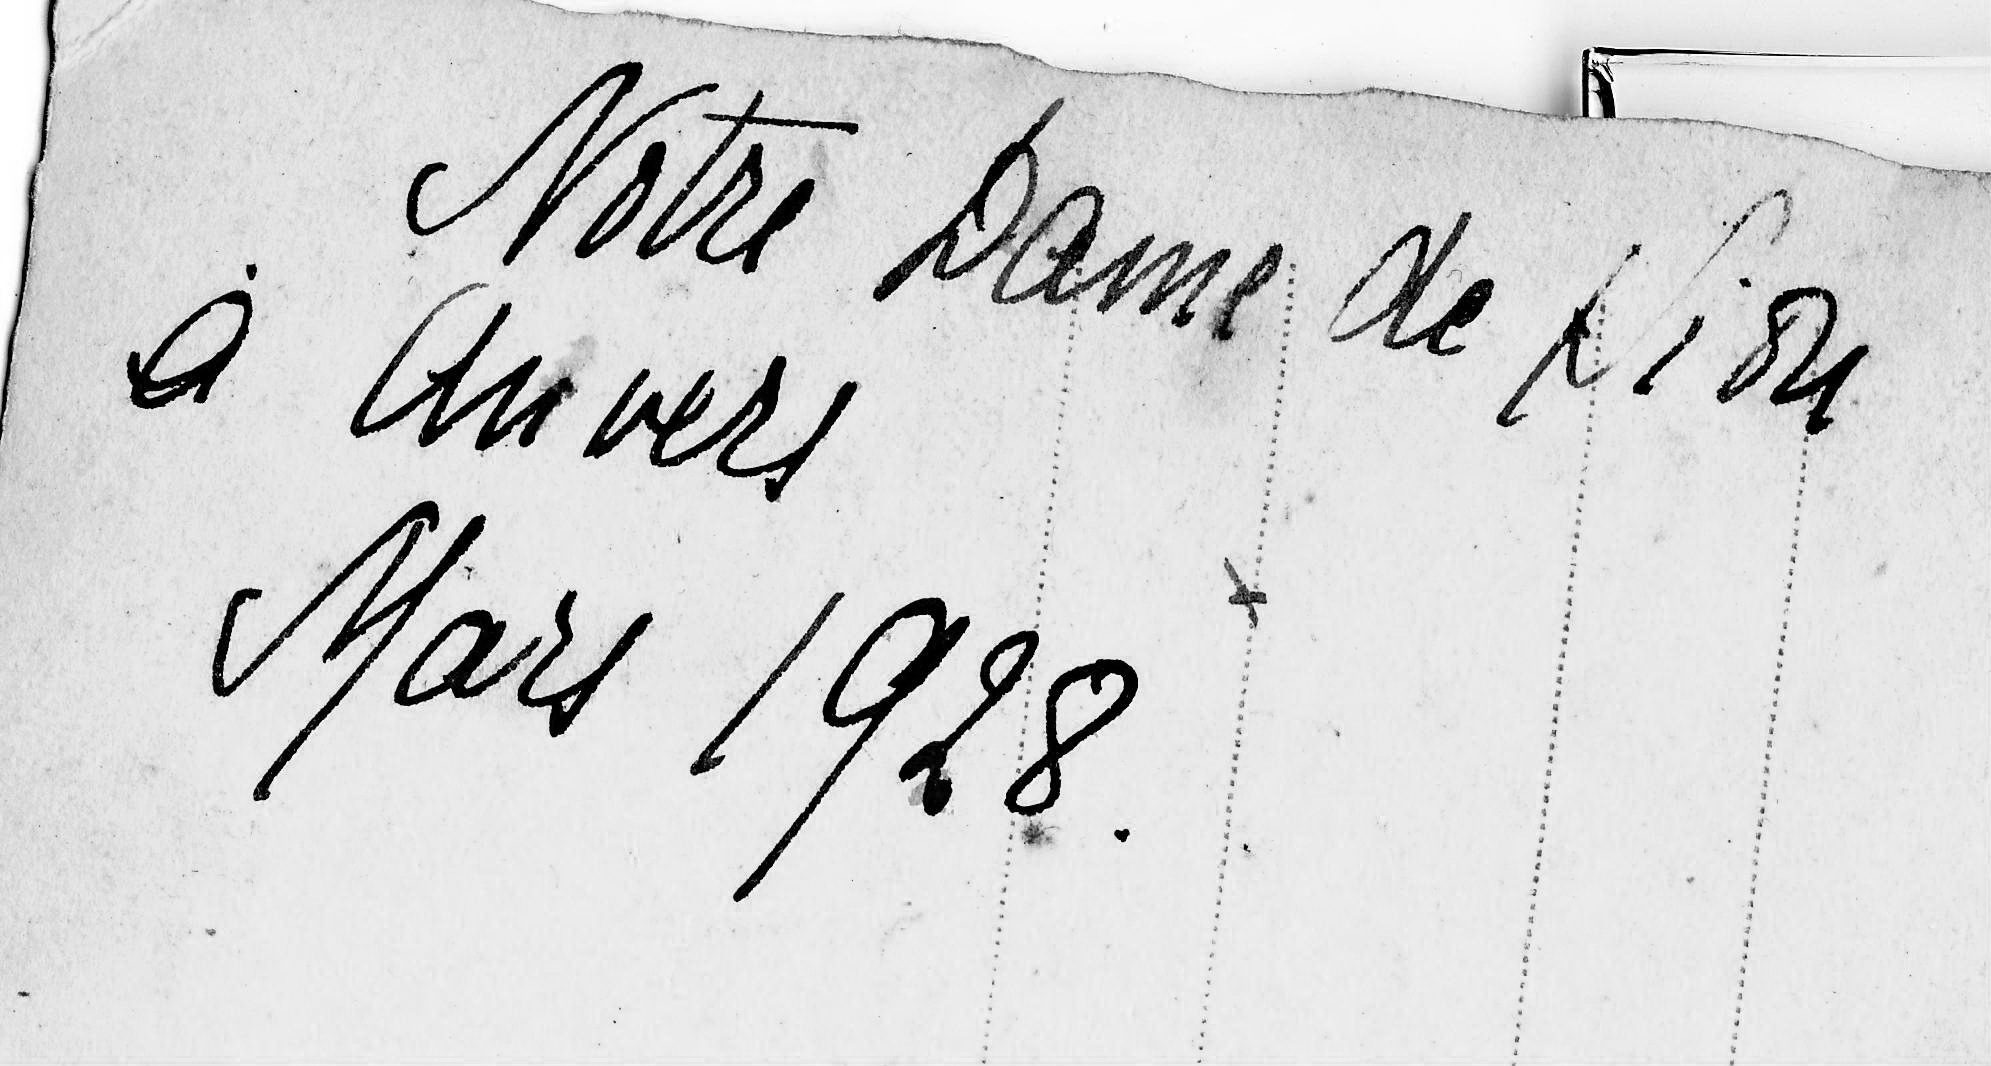 Notre Dame de Sion
à Anvers
Mars 1928.